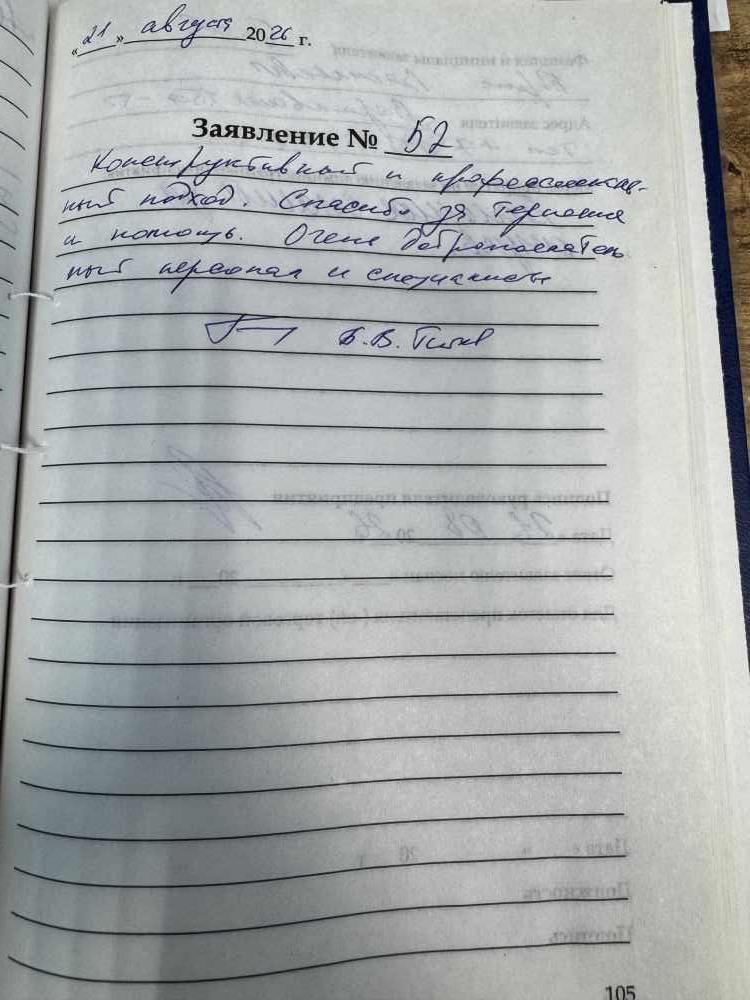 «21» августа 2026 г.
Заявление № 52
Конструктивный и профессиональ-
ный подход. Спасибо за терпение
и помощь. Очень доброжелатель
ный персонал и специалисты
Б.В. Титов
105